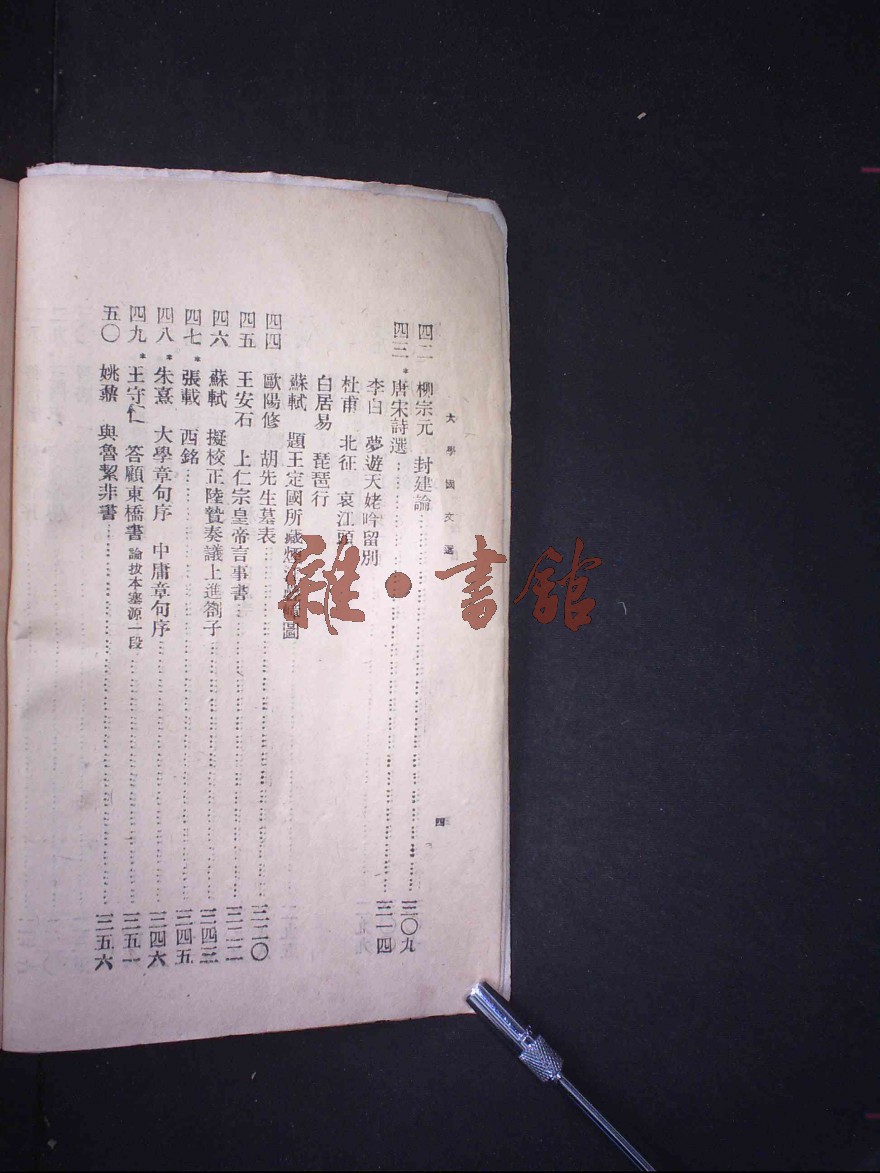 大學國文選
四
四二 柳宗元 封建論……三〇九
四三*唐宋詩選……三一四
李白 夢遊天姥吟留別
杜甫 北征 哀江頭
白居易 琵琶行
蘇軾 題王定國所藏煙江疊嶂圖
四四 歐陽修 胡先生墓表……三二〇
四五 王安石 上仁宗皇帝言事書……三二二
四六 蘇軾 擬校正陸贄奏議上進劄子……三四三
四七*張載 西銘……三四五
四八*朱熹 大學章句序 中庸章句序……三四六
四九*王守仁 答顧東橋書 論拔本塞源一段……三五一
五〇 姚鼐 與魯絜非書……三五六
雜·書館